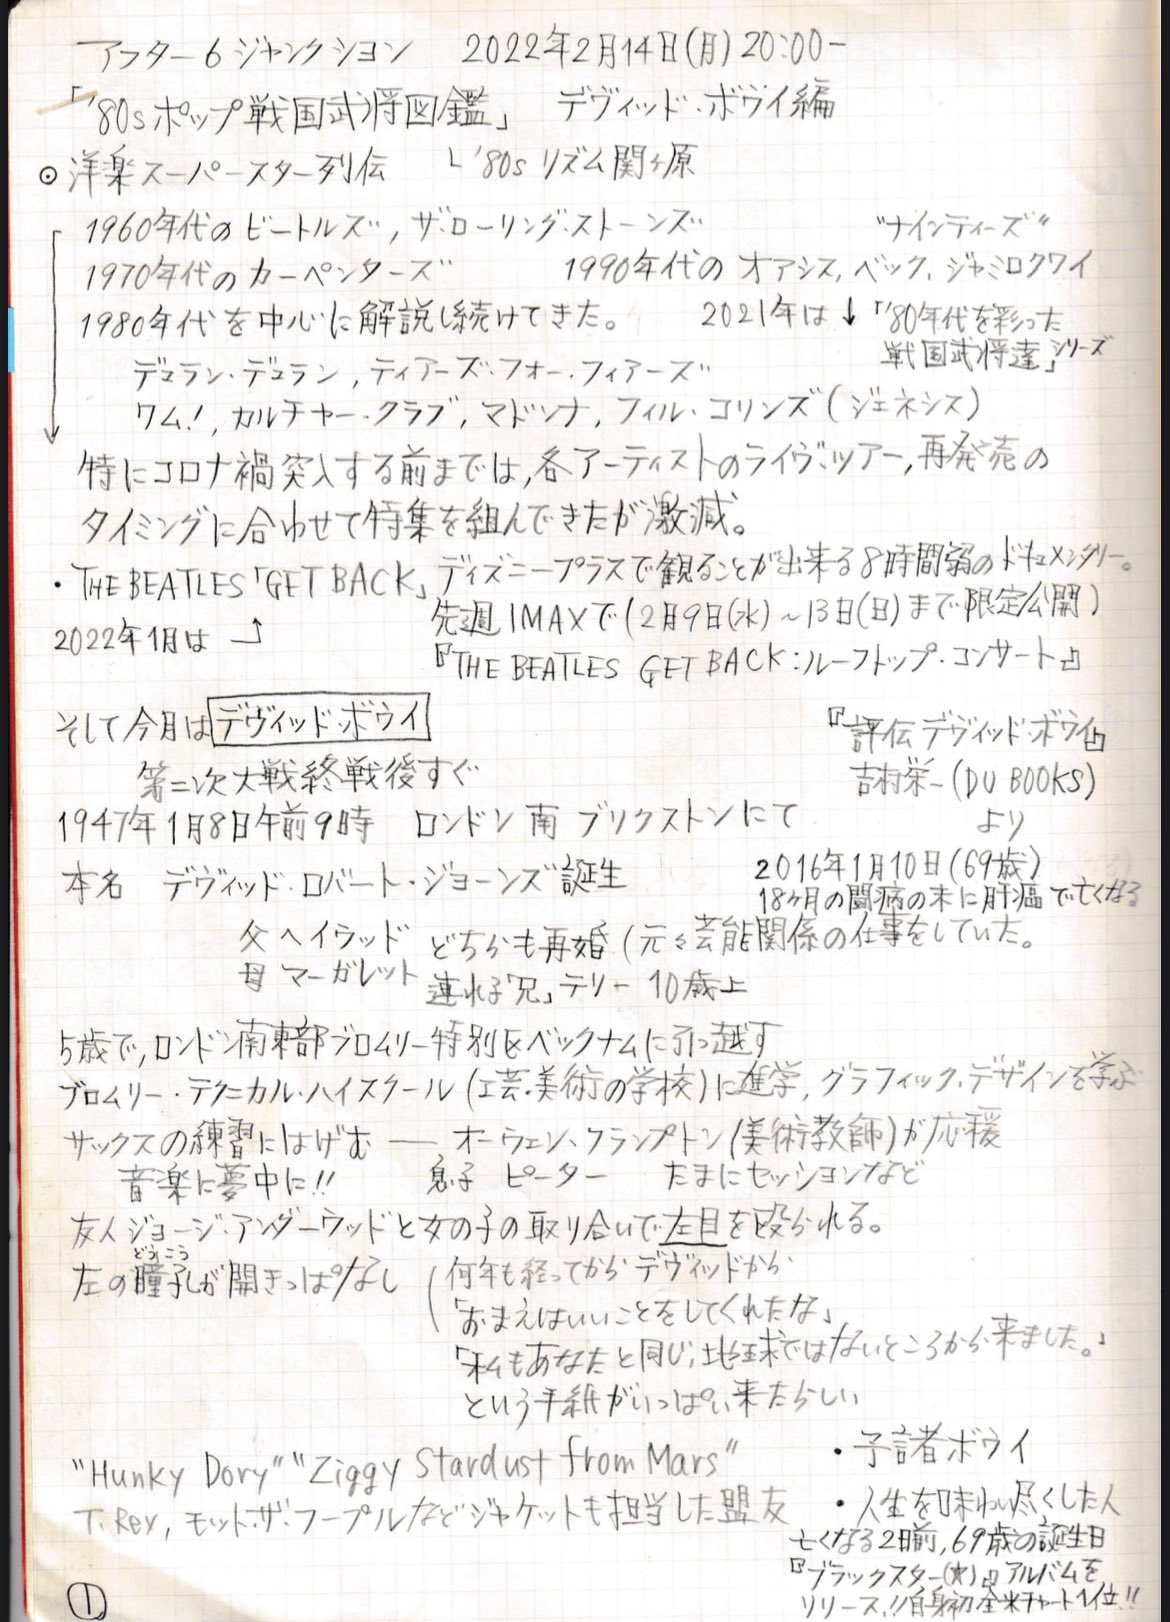 アフター6ジャンクション 2022年2月14日(月)20:00-
「'80sポップ戦国武将図鑑」 デヴィッド・ボウイ編
⊙洋楽スーパースター列伝 └'80sリズム関ヶ原
1960年代のビートルズ, ザ・ローリング・ストーンズ "ナインティーズ"
1970年代のカーペンターズ 1990年代のオアシス, ベック, ジャミロクワイ
1980年代を中心に解説し続けてきた。 2021年は↓「'80年代を彩った
戦国武将達」シリーズ
デュラン・デュラン, ティアーズ・フォー・フィアーズ
ワム!, カルチャー・クラブ, マドンナ, フィル・コリンズ(ジェネシス)
特にコロナ禍突入する前までは, 各アーティストのライヴ・ツアー, 再発売の
タイミングに合わせて特集を組んできたが激減。
・THE BEATLES「GET BACK」ディズニープラスで観ることが出来る8時間弱のドキュメンタリー。
2022年1月は 先週IMAXで(2月9日(水)~13日(日)まで限定公開)
『THE BEATLES GET BACK:ルーフトップ・コンサート』
そして今月はデヴィッド・ボウイ
『評伝デヴィッド・ボウイ』
吉村栄一(DU BOOKS)
より
第二次大戦終戦後すぐ
1947年1月8日午前9時 ロンドン南ブリクストンにて
本名 デヴィッド・ロバート・ジョーンズ誕生
2016年1月10日(69歳)
18ヶ月の闘病の末に肝癌で亡くなる
父 ヘイウッド どちらも再婚(元々芸能関係の仕事をしていた。
母 マーガレット 連れ子「兄」テリー 10歳上
5歳で, ロンドン南東部ブロムリー特別区ベックナムに引っ越す
ブロムリー・テクニカル・ハイスクール(工芸・美術の学校)に進学, グラフィック・デザインを学ぶ
サックスの練習にはげむ ── オーウェン・フランプトン(美術教師)が応援
音楽に夢中に!! 息子 ピーター たまにセッションなど
友人ジョージ・アンダーウッドと女の子の取り合いで左目を殴られる。
どうこう
左の瞳孔が開きっぱなし
(何年も経ってからデヴィッドから
「おまえはいいことをしてくれたな」
「私もあなたと同じ, 地球ではないところから来ました。」
という手紙がいっぱい来たらしい
"Hunky Dory" "Ziggy Stardust from Mars"
T.Rex, モット・ザ・フープルなどジャケットも担当した盟友
・予言者ボウイ
・人生を味わい尽くした人
亡くなる2日前, 69歳の誕生日
『ブラックスター(★)』アルバムを
リリース!! 自身初全米チャート1位!!
①